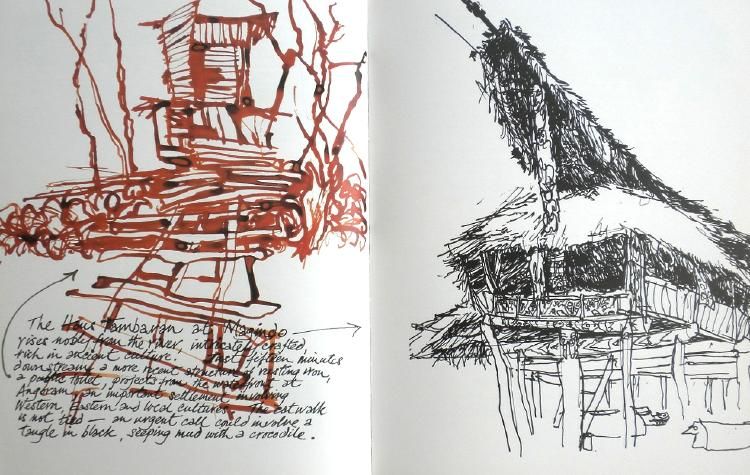 The Haus Tambaran at Magindo
rises nobly from the river, intricately crafted,
rich in ancient culture. Just fifteen minutes
downstream a more recent structure of rusting iron,
a public toilet, projects from the waterfront at
Angoram, an important settlement involving
Western, Eastern and local cultures. The catwalk
is not tied — an urgent call could involve a
tangle in black, seeping mud with a crocodile.